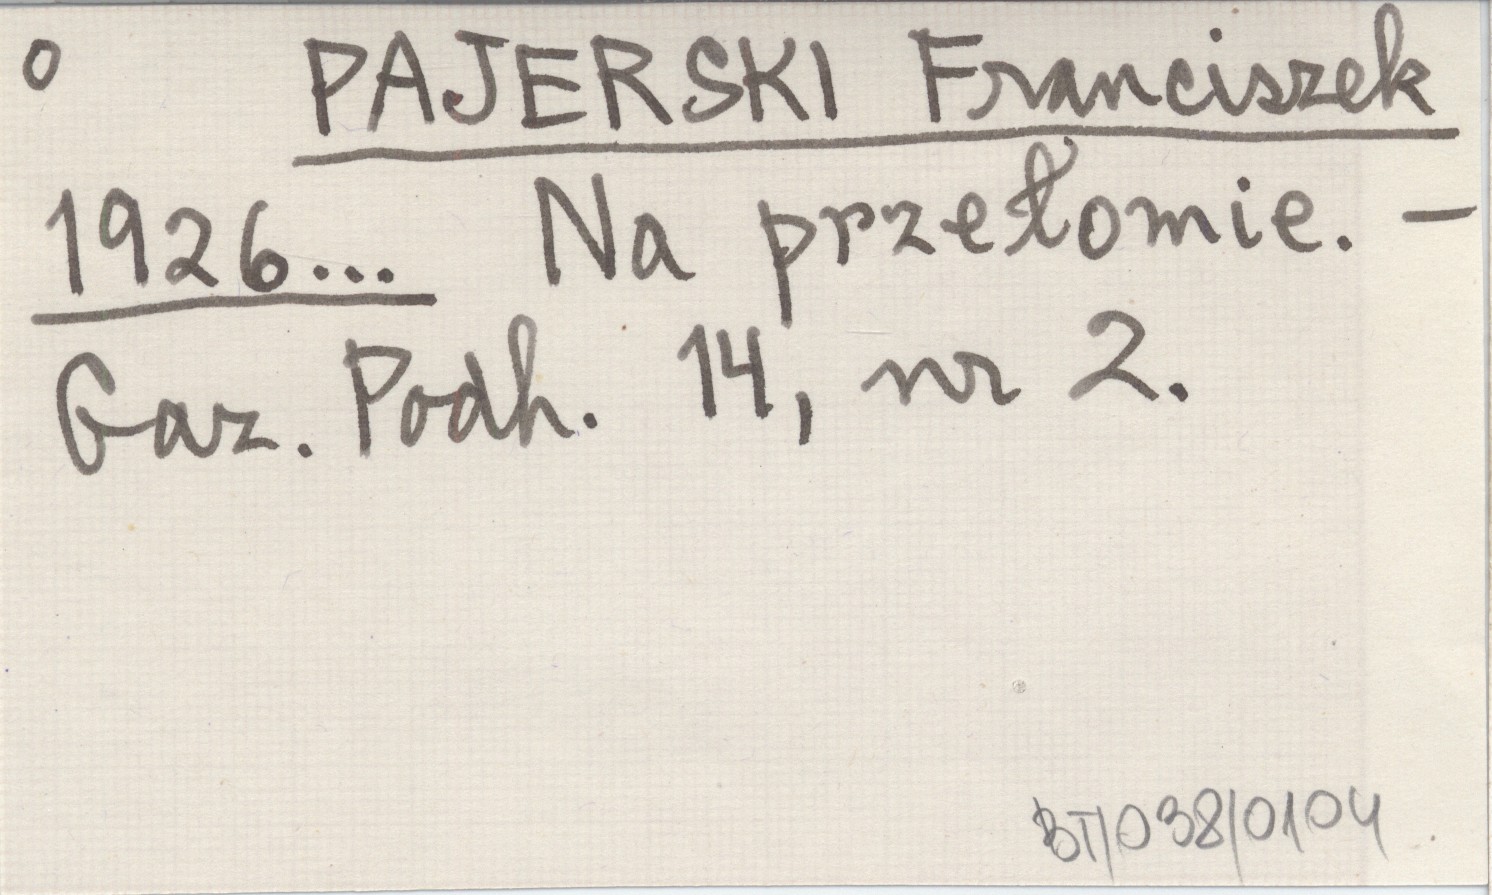 o PAJERSKI Franciszek
1926... Na przełomie. –
Gaz. Podh. 14, nr 2.
BT/038/0104